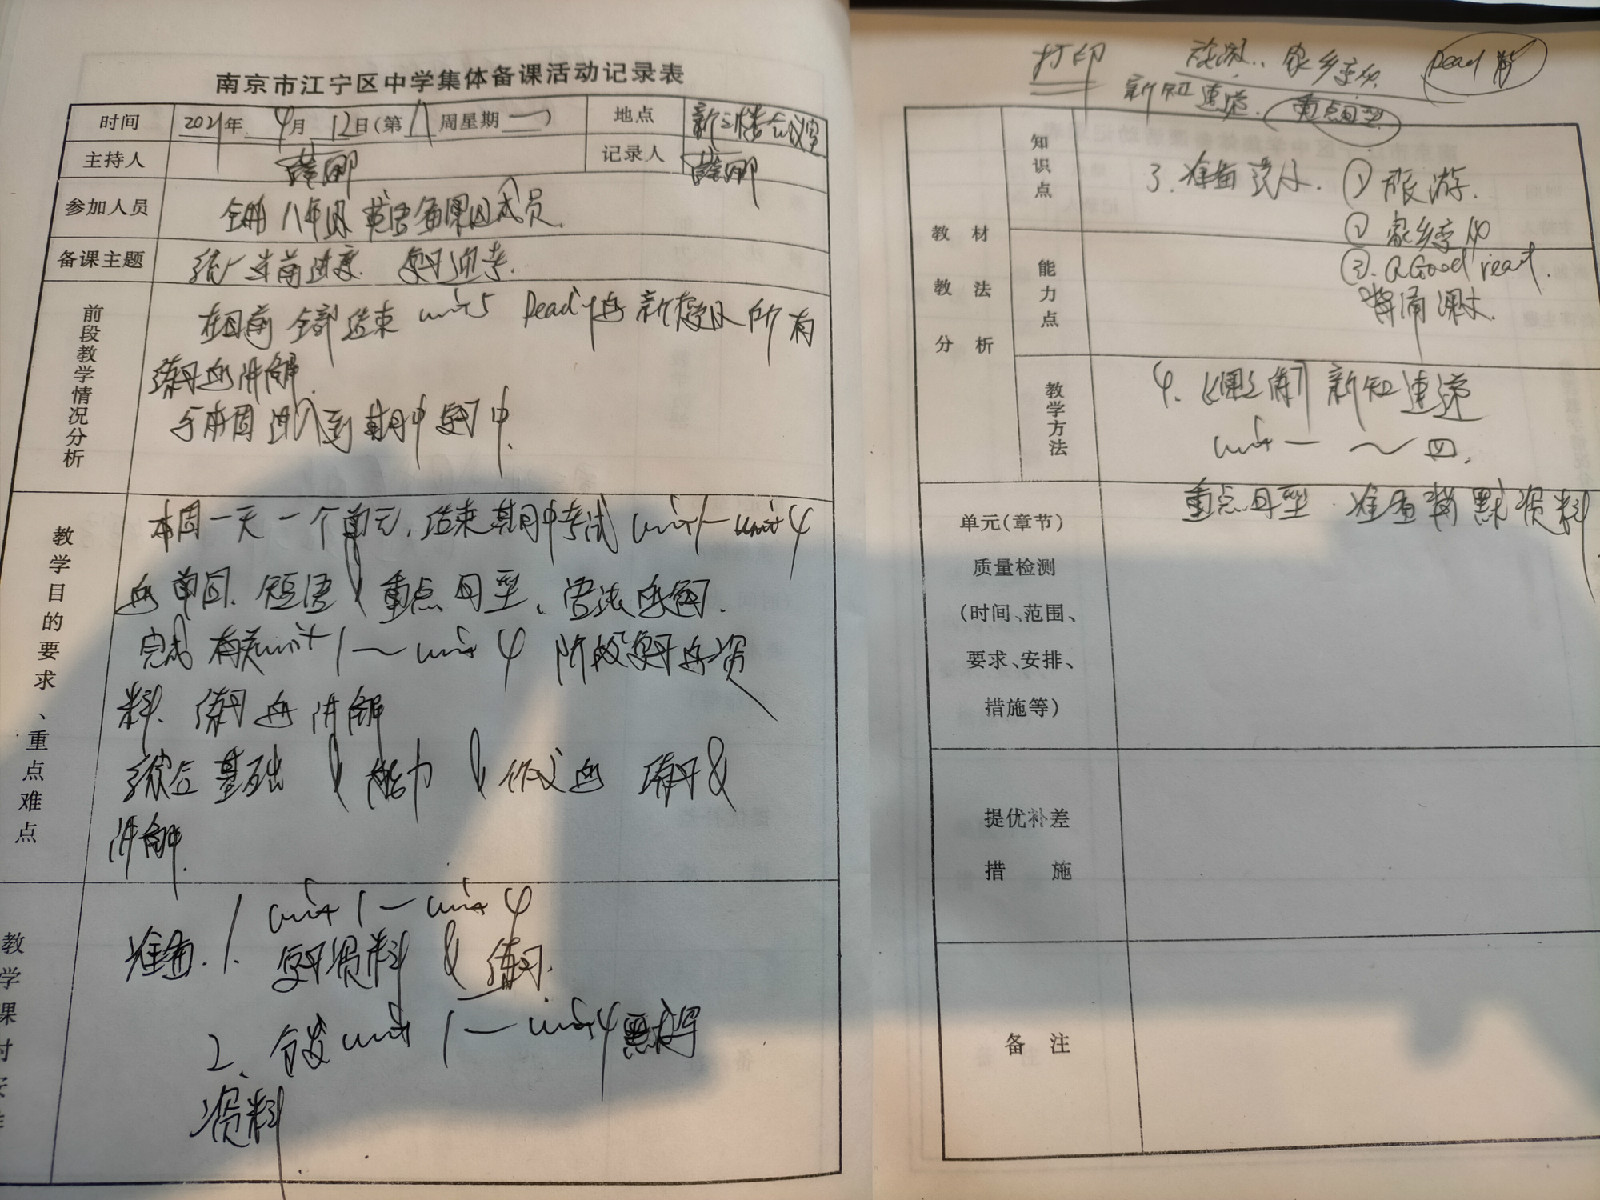 南京市江宁区中学集体备课活动记录表
时间 2021年 4月 12日(第 11 周星期 一) 地点 新三楼会议室
主持人 薛娜 记录人 薛娜
参加人员 全册八年级英语备课组成员
备课主题 统一当前进度 复习迎考.
前段教学情况分析
在目前全部结束 unit5 Read 的新授及所有
练习的讲解.
于本周进入到期中复习中.
教学目的要求、重点难点
本周一天一个单元, 结束期中考试 unit1-unit4
的单词、短语 & 重点句型、语法的复习.
完成有关unit 1~unit 4 阶段复习的资
料、练习的讲解
综合基础 & 能力 & 作文的 练习&
讲解.
教学课时安
准备. 1. unit 1-unit 4
复习资料 & 练习.
2、分发unit 1-unit4默写
资料.
打印 旅游、家乡变化 Read 背
新知速递. 重点句型
教材教法分析
知识点
3. 准备范文. ① 旅游.
② 家乡变化
能力点
③. a Good read.
背诵课文.
教学方法
4.《课课练》新知速递
unit 一 ~ 四.
重点句型 准备背默资料
单元(章节)
质量检测
(时间、范围、
要求、安排、
措施等)
提优补差
措 施
备 注